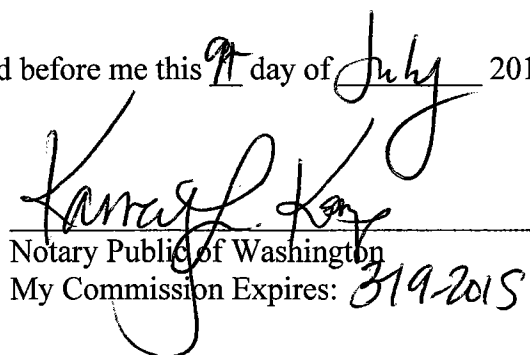 d before me this 9th day of July 201
Notary Public of Washington
My Commission Expires: 3-19-2015